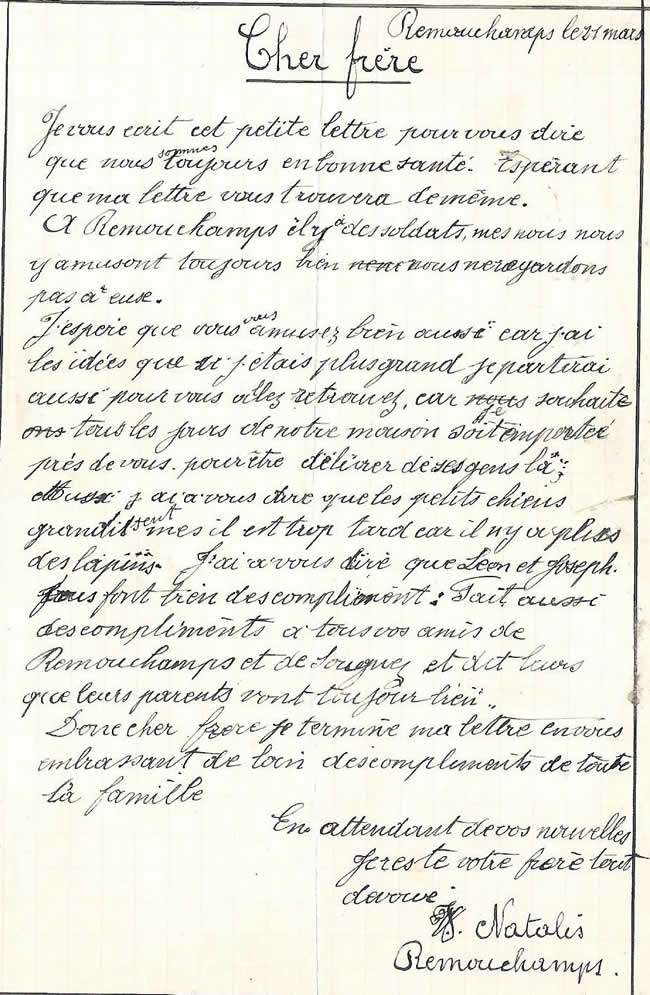 Remouchamps le 21 mars
Cher frère
Je vous ecrit cet petite lettre pour vous dire
que nous sommes toujours en bonne santé. Espérant
que ma lettre vous trouvera de même.
A Remouchamps il y a des soldats, mes nous nous
y amusont toujours bien nous ne regardons
pas a euse.
J'espère que vous vous amusez bien aussi car j'ai
les idées que si j'étais plus grand je partirai
aussi pour vous alez retrouvez, car je souhaite
tous les jours de notre maison soit emporteé
près de vous. pour être délivrer de ses gens là
Aussi j'ai a vous dire que les petits chiens
grandissent mes il est trop tard car il n'y a plus
des lapins. J'ai a vous dire que Léon et Joseph.
vous font bien des compliment: Fait aussi
des compliments a tous vos amis de
Remouchamps et de Sougnez et dit leurs
que leurs parents vont toujour bien..
Donc cher frere je termine ma lettre en vous
embrassant de loin des compliments de toute
la famille
En attendant de vos nouvelles
Je reste votre frere tout
devoué
Natalis
Remouchamps.